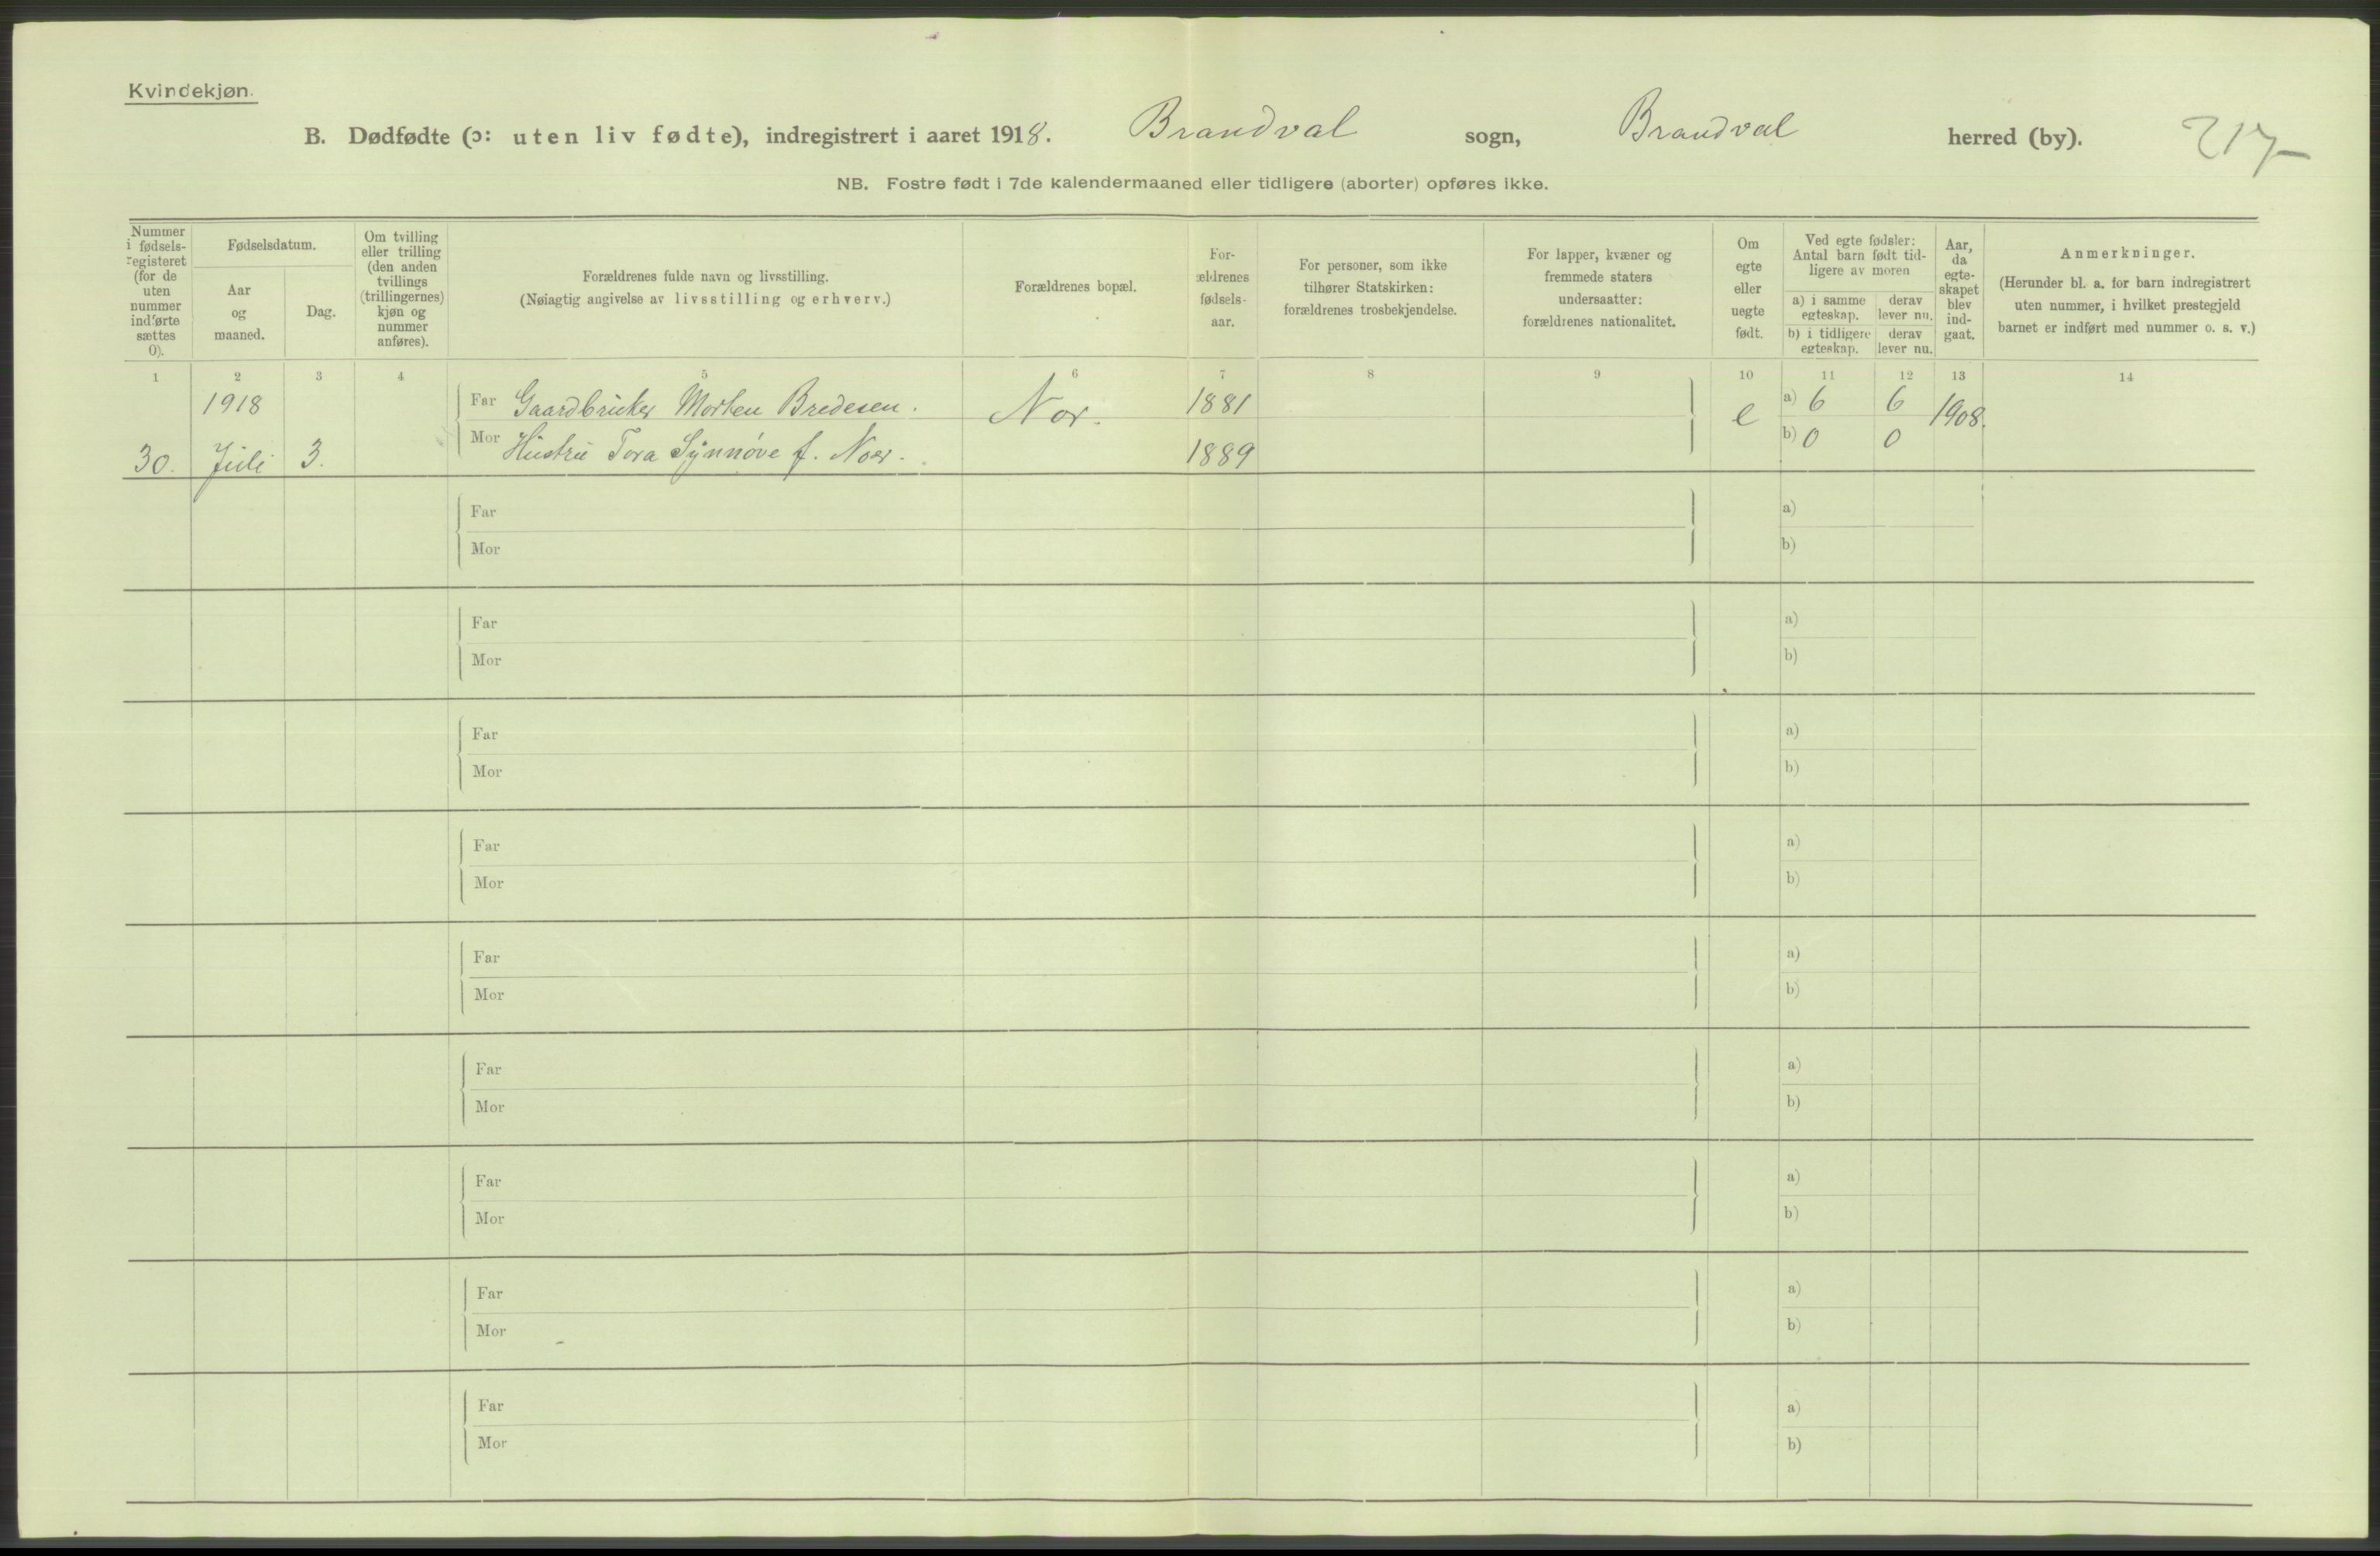 Kvindekjøn.
B. Dødfødte (ɔ: uten liv fødte), indregistrert i aaret 1918. Brandval sogn, Brandval herred (by). 217
NB. Fostre født i 7de kalendermaaned eller tidligere (aborter) opføres ikke.
Nummer
i fødsels-
registeret
(for de
uten
nummer
indførte
sættes
0).
Fødselsdatum.
Aar
og
maaned.
Dag.
Om tvilling
eller trilling
(den anden
tvillings
(trillingernes)
kjøn og
nummer
anføres).
Forældrenes fulde navn og livsstilling.
(Nøiagtig angivelse av livsstilling og erhverv.)
Forældrenes bopæl.
For-
ældrenes
fødsels-
aar.
For personer, som ikke
tilhører Statskirken:
forældrenes trosbekjendelse.
For lapper, kvæner og
fremmede staters
undersaatter:
forældrenes nationalitet.
Om
egte
eller
uegte
født.
Ved egte fødsler:
Antal barn født tid-
ligere av moren
a) i samme
egteskap.
derav
lever nu.
b) i tidligere
egteskap.
derav
lever nu.
Aar,
da
egte-
skapet
blev
ind-
gaat.
Anmerkninger.
(Herunder bl. a. for barn indregistrert
uten nummer, i hvilket prestegjeld
barnet er indført med nummer o. s. v.)
1 2 3 4 5 6 7 8 9 10 11 12 13 14
1918 Far Gaardbruker Morten Bredesen. Nor. 1881 e a) 6 6 1908.
30. Juli 3. Mor Hustru Tora Synnøve f. Noer. 1889 b) 0 0
Far a)
Mor b)
Far a)
Mor b)
Far a)
Mor b)
Far a)
Mor b)
Far a)
Mor b)
Far a)
Mor b)
Far a)
Mor b)
Far a)
Mor b)
Far a)
Mor b)